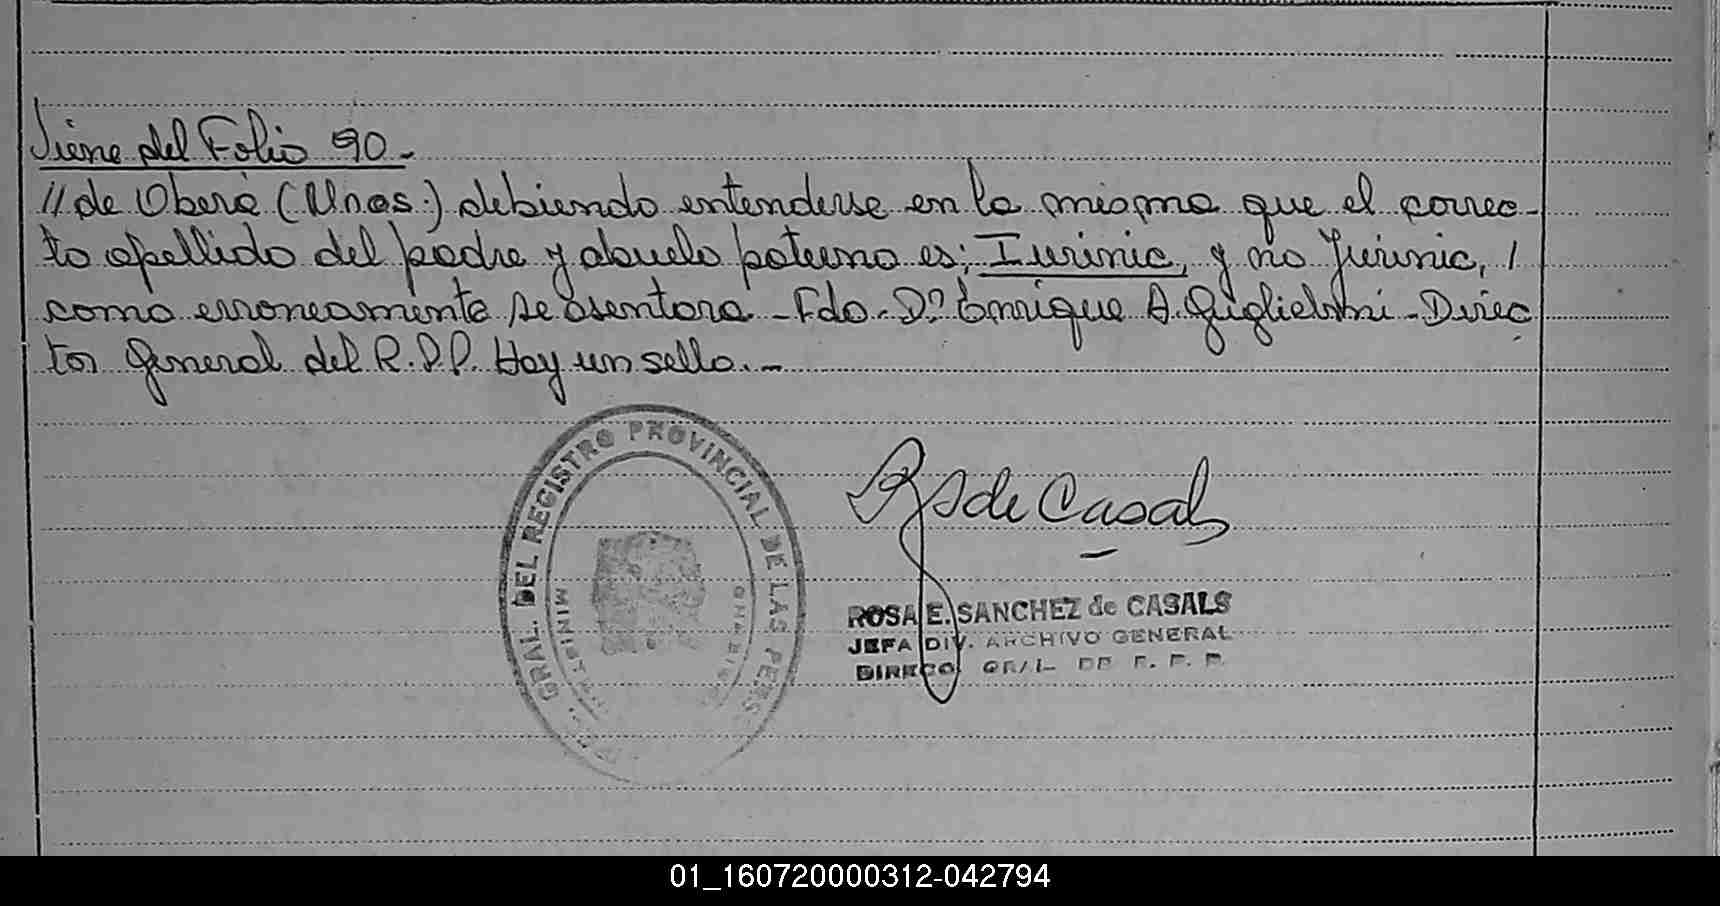 Viene del Folio 90.-
// de Oberá (Mnes.) debiendo entenderse en la misma que el correc-
to apellido del padre y abuelo paterno es: Iurinic, y no Jurinic, /
como erroneamente se asentara - Fdo. Dº Enrique A. Guglielmi - Direc
tor General del R.P.P. Hay un sello.-
GRAL. DEL REGISTRO PROVINCIAL DE LAS PERS
R S de Casals
ROSA E. SANCHEZ de CASALS
JEFA DIV. ARCHIVO GENERAL
DIRECC. GRAL DE R. P. P.
01_160720000312-042794